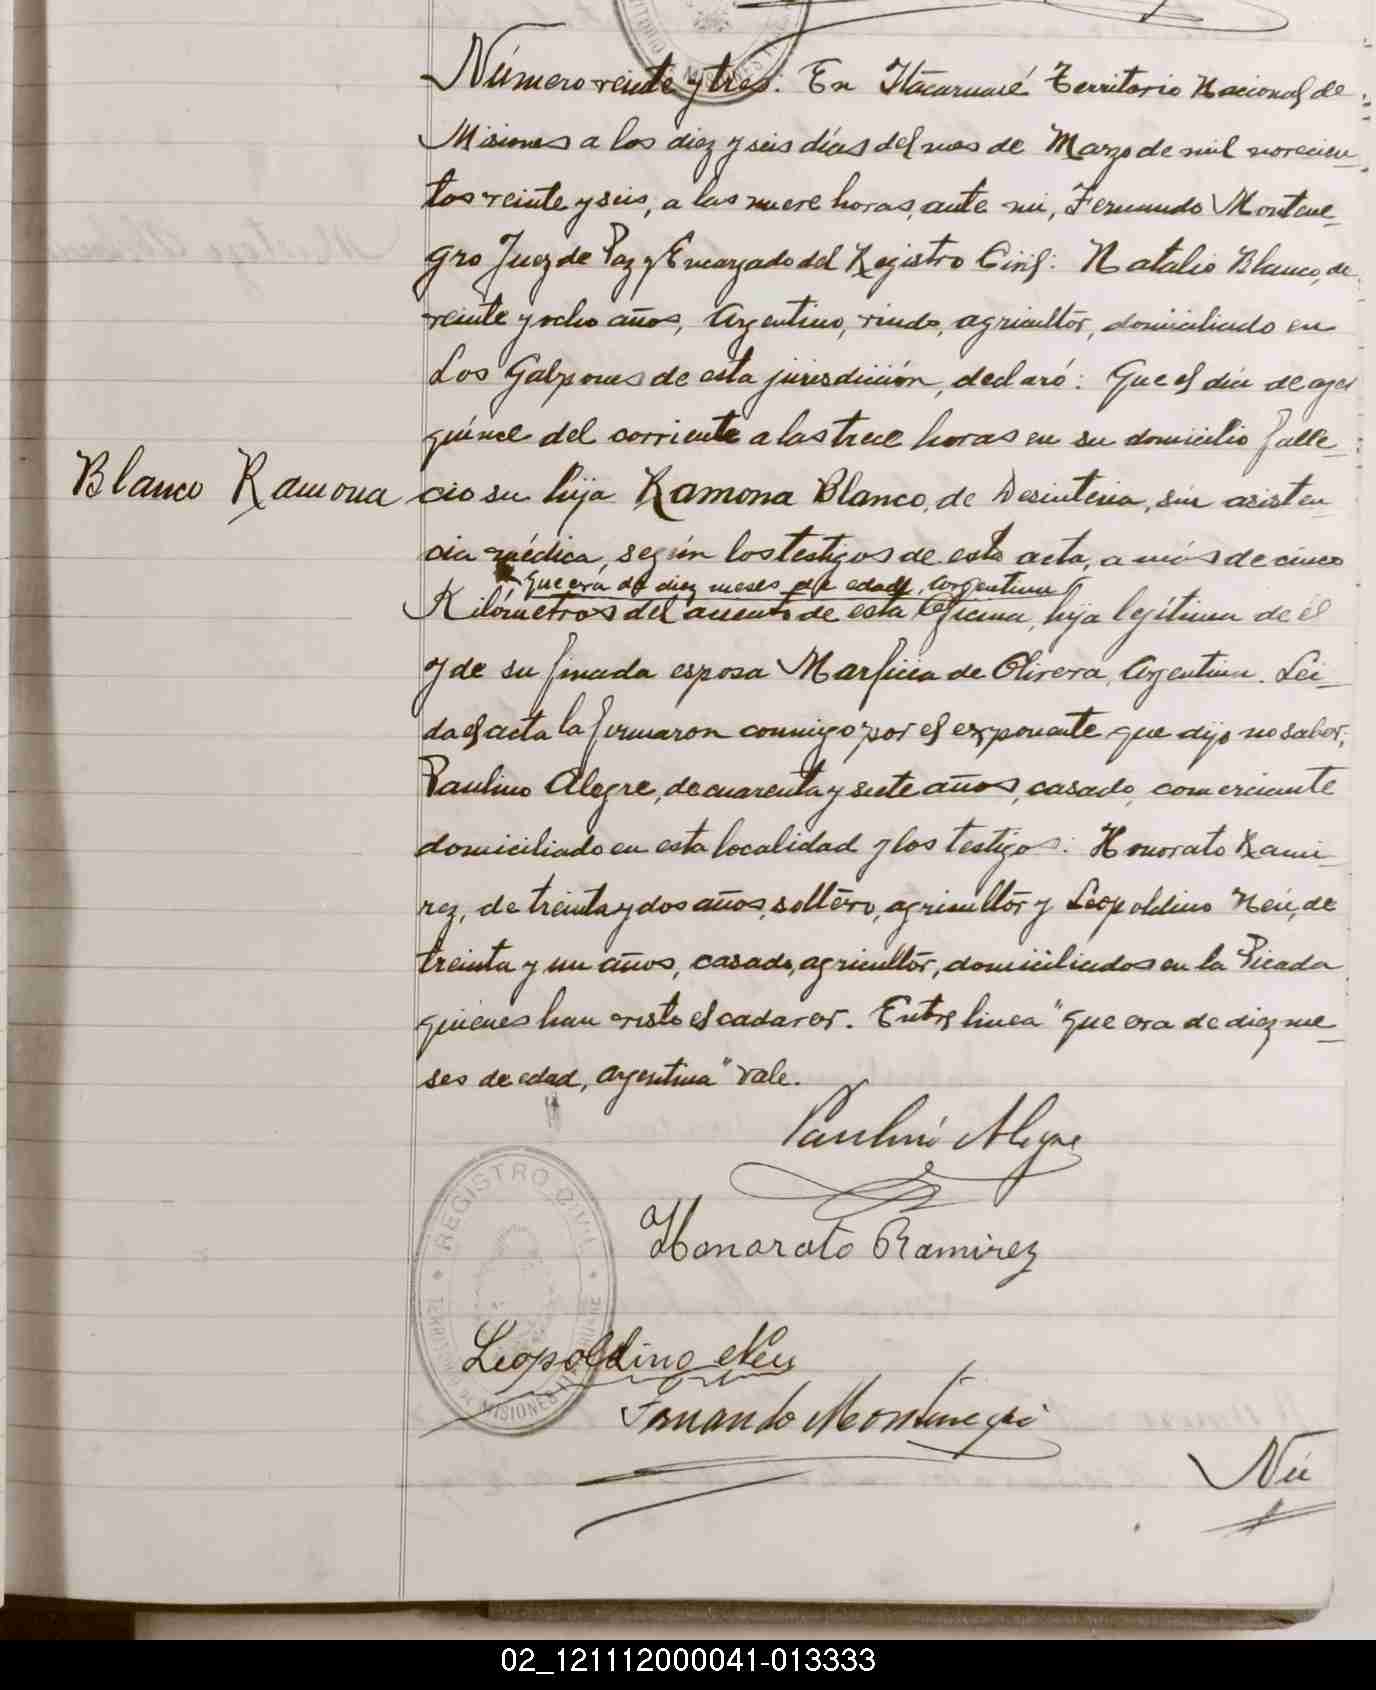 Número veinte y tres. En Itacaruaré Territorio Nacional de
Misiones a los diez y seis días del mes de Marzo de mil novecien-
tos veinte y seis, a las nueve horas, ante mi, Fernando Montene-
gro Juez de Paz y Encargado del Registro Civil: Natalio Blanco, de
veinte y ocho años, Argentino, viudo, agricultor, domiciliado en
Los Galpones de esta jurisdicción, declaró: Que el día de ayer
quince del corriente a las trece horas en su domicilio falle-
Blanco Ramona
ció su hija Ramona Blanco, de Desinteria, sin asisten-
cia médica, según los testigos de esta acta, a más de cinco
que era de diez meses de edad, argentina
Kilómetros del asiento de esta Oficina, hija legítima de él
y de su finada esposa de Olivera, Argentina. Lei-
da el acta la firmaron conmigo por el exponente que dijo no saber,
Paulino Alegre, de cuarenta y siete años, casado, comerciante
domiciliado en esta localidad y los testigos: Honorato Rami-
rez, de treinta y dos años, soltero, agricultor y Leopoldino Neu, de
treinta y un años, casado, agricultor, domiciliados en la Picada
quienes han visto el cadaver. Entre linea "que era de diez me-
ses de edad, argentina" vale.
Paulino Alegre
Honorato Ramirez
REGISTRO CIVIL
TERRITORIO DE MISIONES
Leopoldino Neu
Fernando Montenegro
Nú
02_121112000041-013333